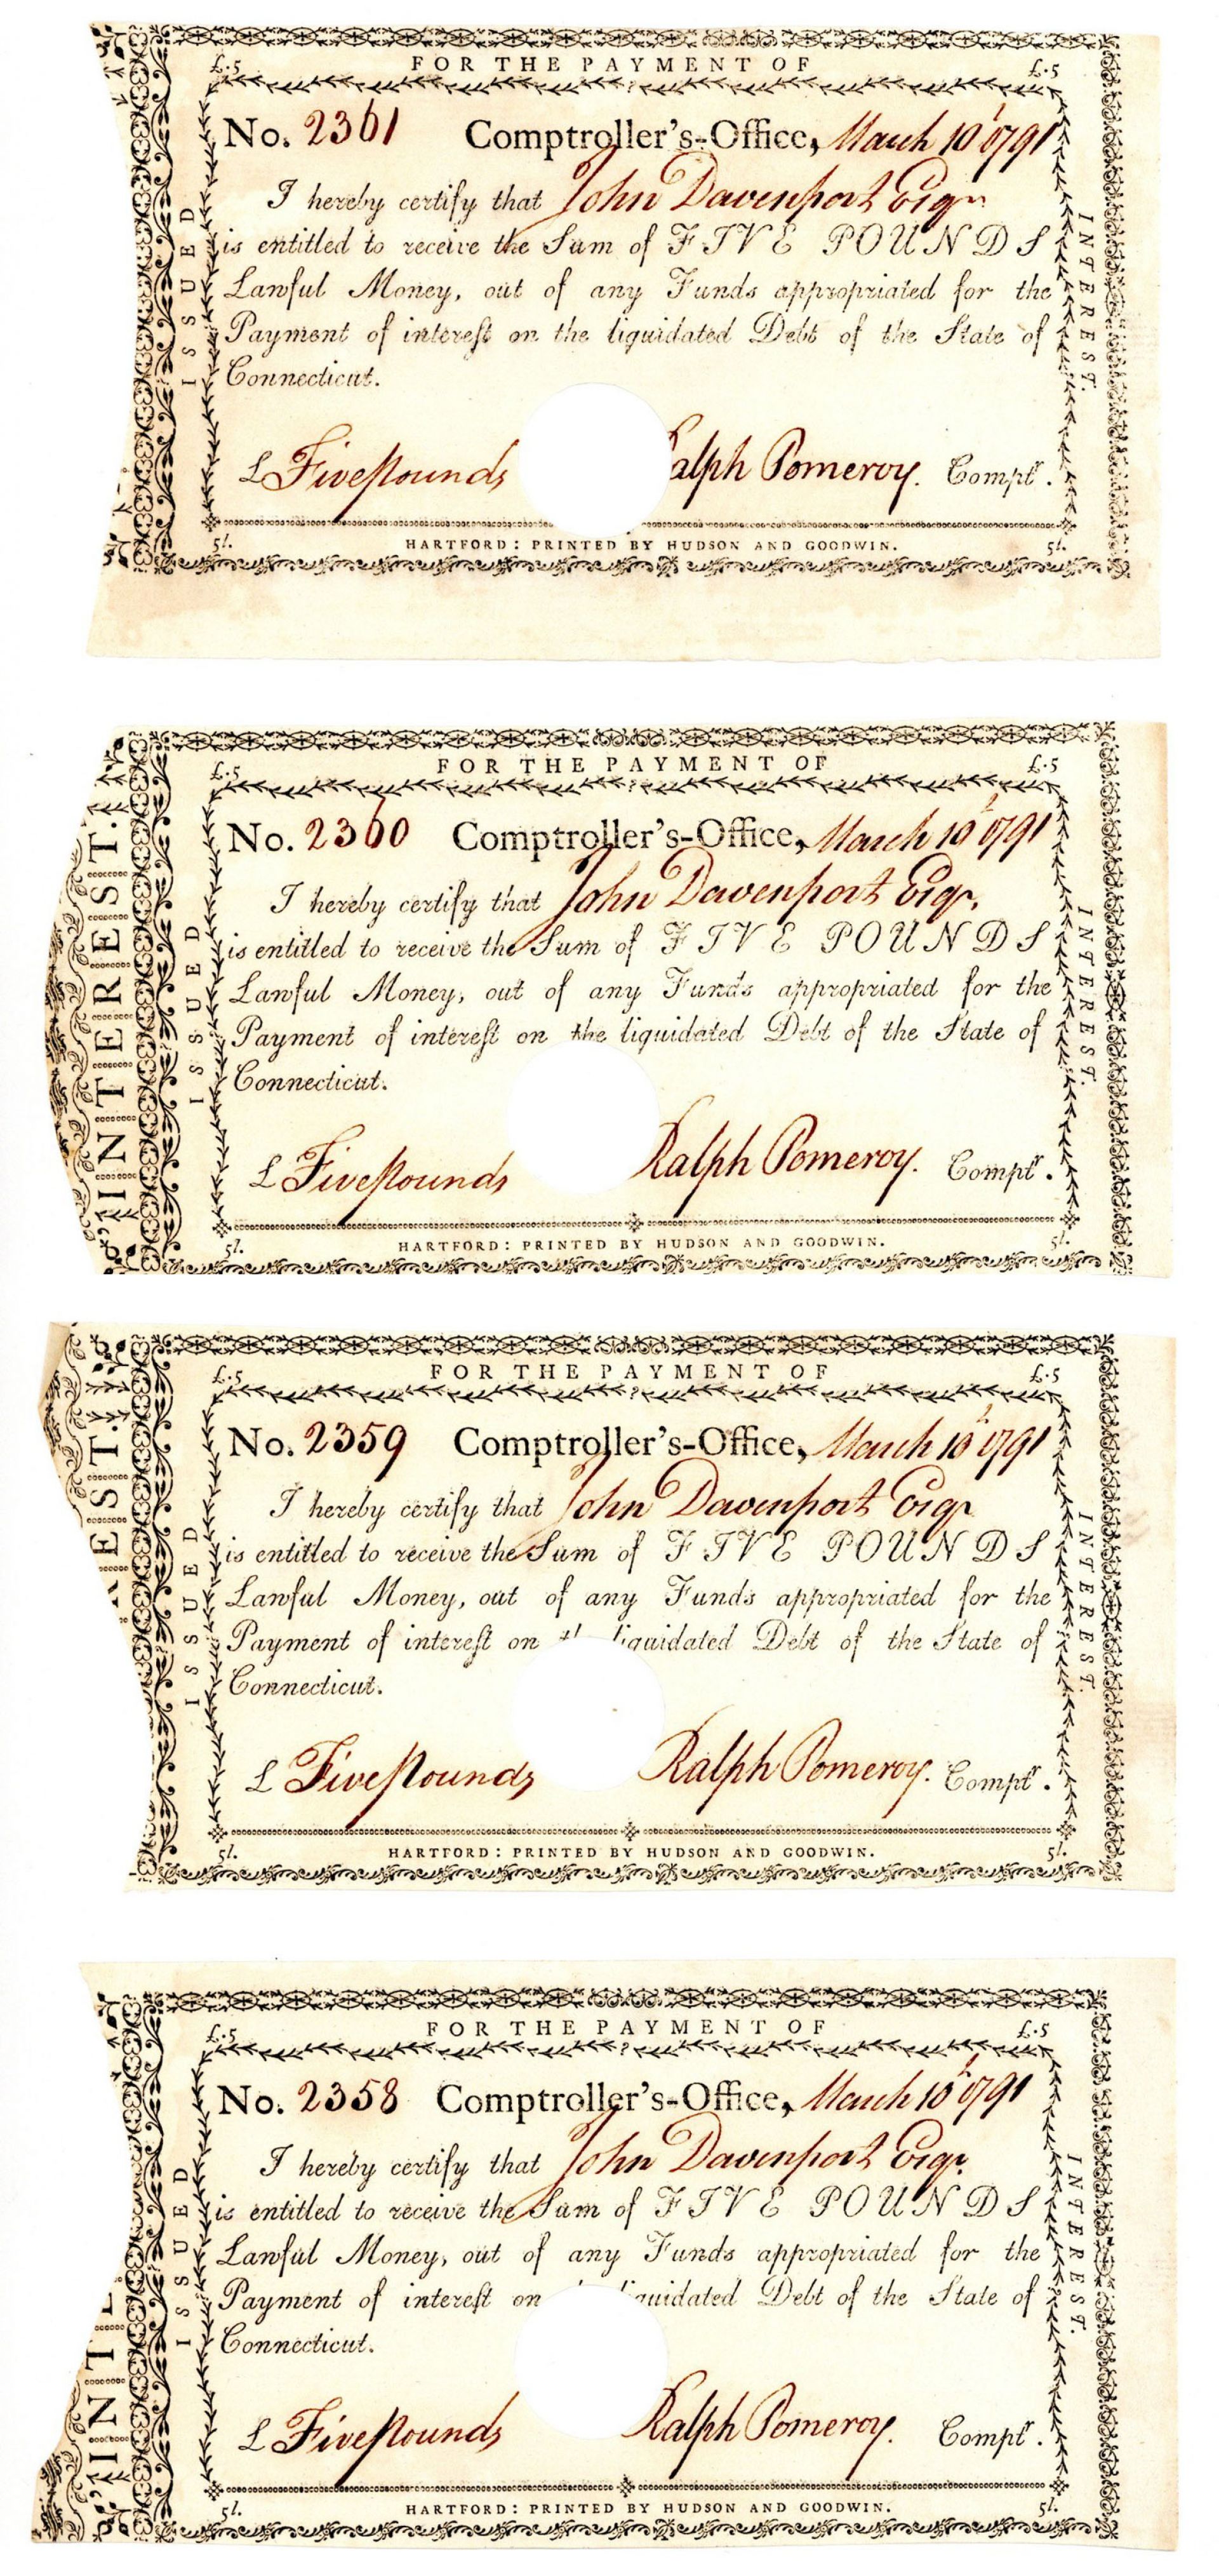 FOR THE PAYMENT OF
£.5 £.5
No. 2361 Comptroller's-Office, March 10t 1791
I hereby certify that John Davenport Esqr.
is entitled to receive the Sum of FIVE POUNDS
Lawful Money, out of any Funds appropriated for the
Payment of interest on the liquidated Debt of the State of
Connecticut.
£ Five pounds Ralph Pomeroy. Comptr.
5l. HARTFORD: PRINTED BY HUDSON AND GOODWIN. 5l.
ISSUED
INTEREST.
FOR THE PAYMENT OF
£.5 £.5
No. 2360 Comptroller's-Office, March 10t 1791
I hereby certify that John Davenport Esqr.
is entitled to receive the Sum of FIVE POUNDS
Lawful Money, out of any Funds appropriated for the
Payment of interest on the liquidated Debt of the State of
Connecticut.
£ Five pounds Ralph Pomeroy. Comptr.
5l. HARTFORD: PRINTED BY HUDSON AND GOODWIN. 5l.
INTEREST.
ISSUED
INTEREST.
FOR THE PAYMENT OF
£.5 £.5
No. 2359 Comptroller's-Office, March 10t 1791
I hereby certify that John Davenport Esqr
is entitled to receive the Sum of FIVE POUNDS
Lawful Money, out of any Funds appropriated for the
Payment of interest on liquidated Debt of the State of
Connecticut.
£ Five pounds Ralph Pomeroy. Comptr.
5l. HARTFORD: PRINTED BY HUDSON AND GOODWIN. 5l.
REST.
ISSUED
INTEREST.
FOR THE PAYMENT OF
£.5 £.5
No. 2358 Comptroller's-Office, March 10t 1791
I hereby certify that John Davenport Esqr.
is entitled to receive the Sum of FIVE POUNDS
Lawful Money, out of any Funds appropriated for the
Payment of interest on liquidated Debt of the State of
Connecticut.
£ Five pounds Ralph Pomeroy. Comptr.
5l. HARTFORD: PRINTED BY HUDSON AND GOODWIN. 5l.
INTE
ISSUED
INTEREST.